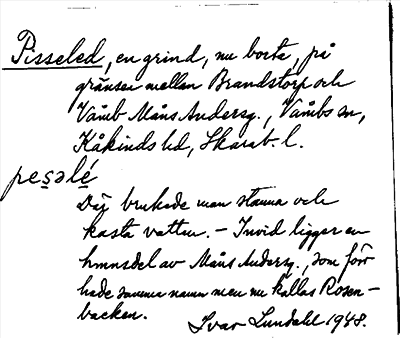 Pisseled, en grind, nu borta, på
gränsen mellan Brandstorp och
Våmb Måns Andersg., Våmbs sn,
Kåkinds hd, Skarab. l.
pesəlé
Där brukade man stanna och
kasta vatten. – Invid ligger en
hmnsdel av Måns Andersg., som förr
hade samma namn men nu kallas Rosen-
backen.
Ivar Lundahl 1948.